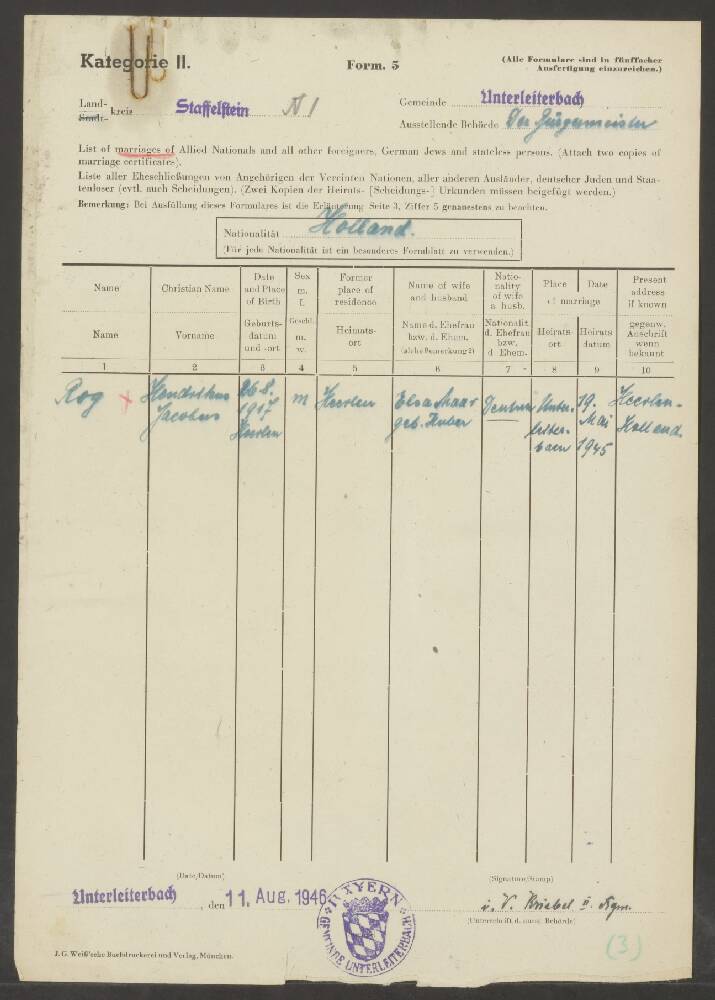 Kategorie II.
Form. 5
(Alle Formulare sind in fünffacher
Ausfertigung einzureichen.)
Land-
Stadt- kreis Staffelstein N 1
Gemeinde Unterleiterbach
Ausstellende Behörde Der Bürgermeister
List of marriages of Allied Nationals and all other foreigners, German Jews and stateless persons. (Attach two copies of
marriage certificates).
Liste aller Eheschließungen von Angehörigen der Vereinten Nationen, aller anderen Ausländer, deutscher Juden und Staa-
tenloser (evtl. auch Scheidungen). (Zwei Kopien der Heirats- [Scheidungs-] Urkunden müssen beigefügt werden.)
Bemerkung: Bei Ausfüllung dieses Formulares ist die Erläuterung Seite 3, Ziffer 5 genauestens zu beachten.
Nationalität Holland.
(Für jede Nationalität ist ein besonderes Formblatt zu verwenden.)
Name
Christian Name
Date
and Place
of Birth
Sex
m.
f.
Former
place of
residence
Name of wife
and husband
Natio-
nality
of wife
a. husb.
Place
Date
of marriage
Present
address
if known
Name
Vorname
Geburts-
datum
und -ort
Geschl.
m.
w.
Heimats-
ort
Name d. Ehefrau
bzw. d. Ehem.
(siehe Bemerkung 2)
Nationalit.
d. Ehefrau
bzw.
d. Ehem.
Heirats-
ort
Heirats-
datum
gegenw.
Anschrift
wenn
bekannt
1 2 3 4 5 6 7 8 9 10
Rog
Hendrikus
Jacobus
26.8.
1917
Heerlen
m
Heerlen
Elsa Haar
geb. Huber
Unter-
leiter-
bach
19.
Mai
1945
Heerlen-
Holland.
(Date/Datum)
(Signature/Stamp)
Unterleiterbach, den 11. Aug. 1946
BAYERN
GEMEINDE UNTERLEITERBACH
i. V. Kriebel II. Bgm.
(Unterschrift d. ausst. Behörde)
J. G. Weiß'sche Buchdruckerei und Verlag, München.
(3)